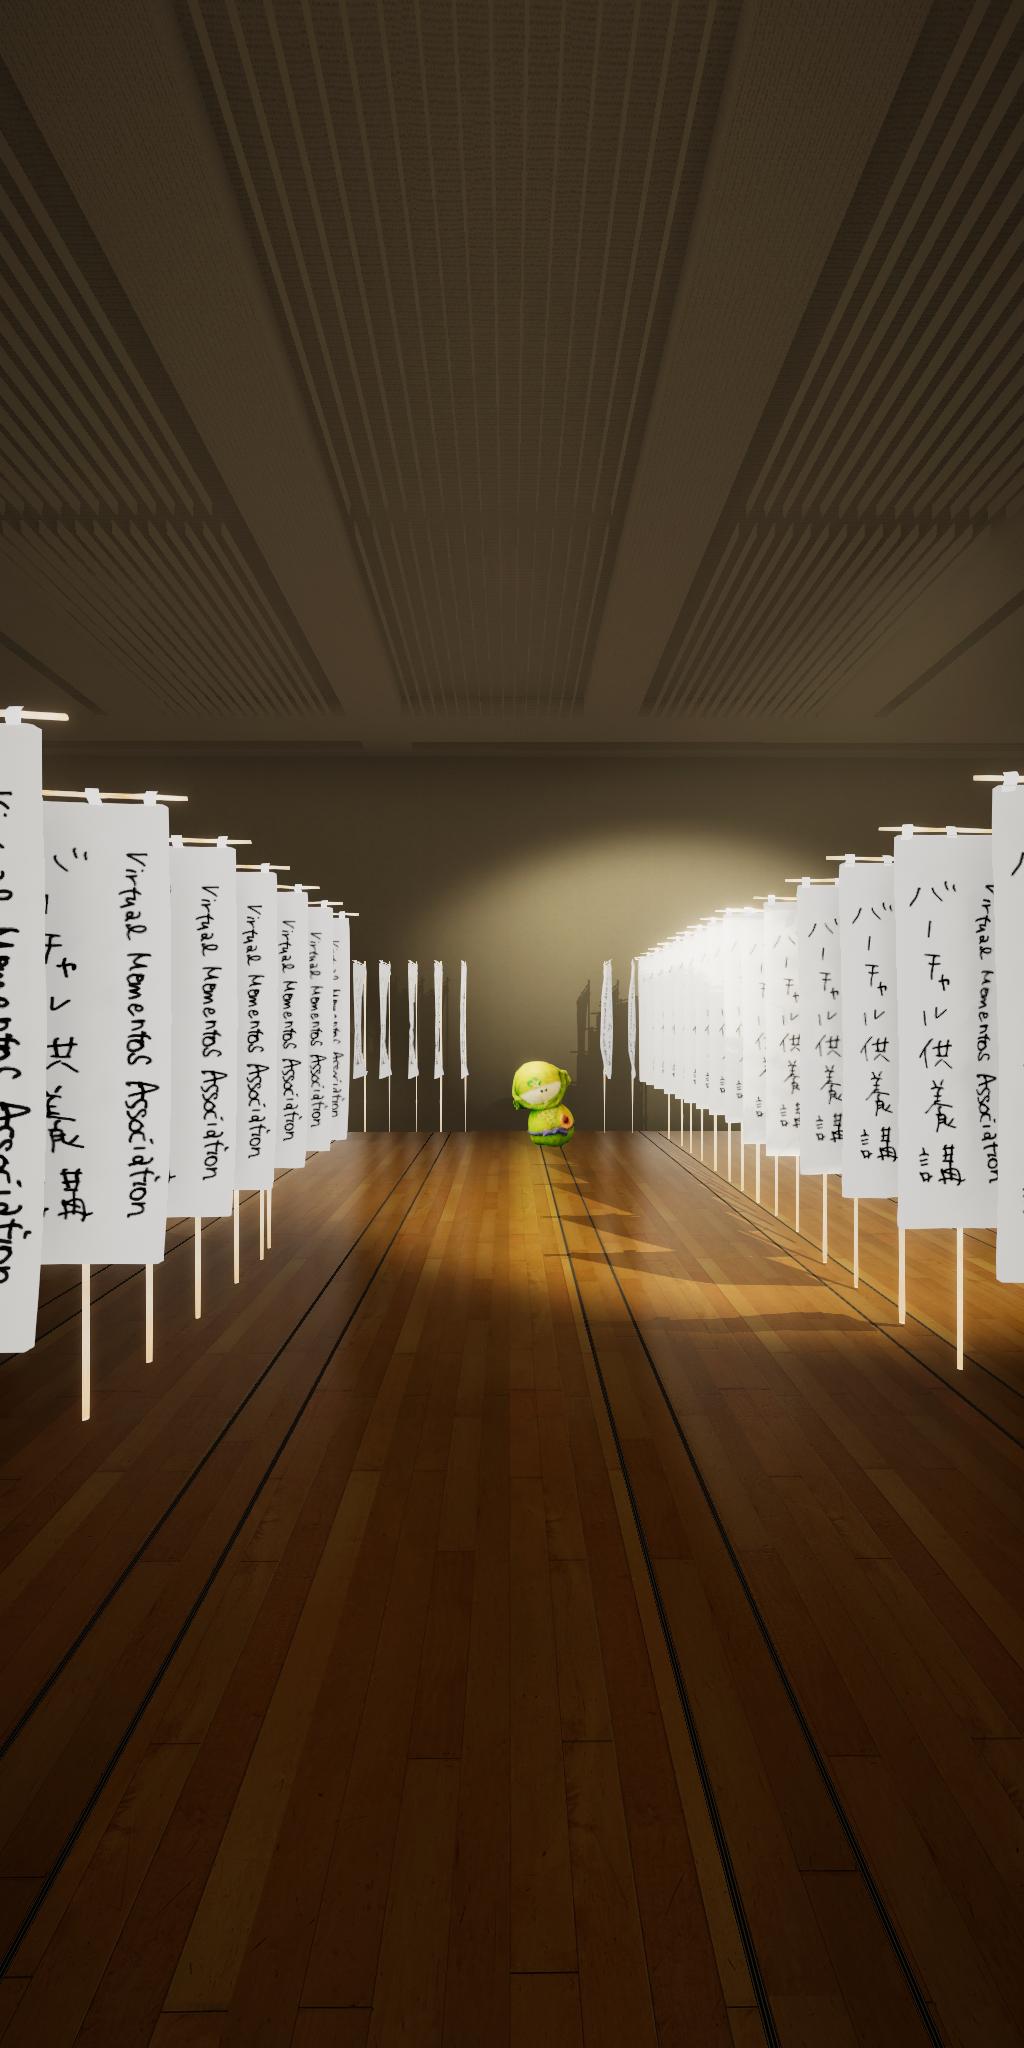 Virtual Mementos Association
バーチャル供養講
Virtual Mementos Association
Virtual Mementos Association
Virtual Mementos Association
Virtual Mementos Association
Virtual Mementos Association
バーチャル供養講
バーチャル供養講
バーチャル供養講
バーチャル供養講
Virtual Mementos Association